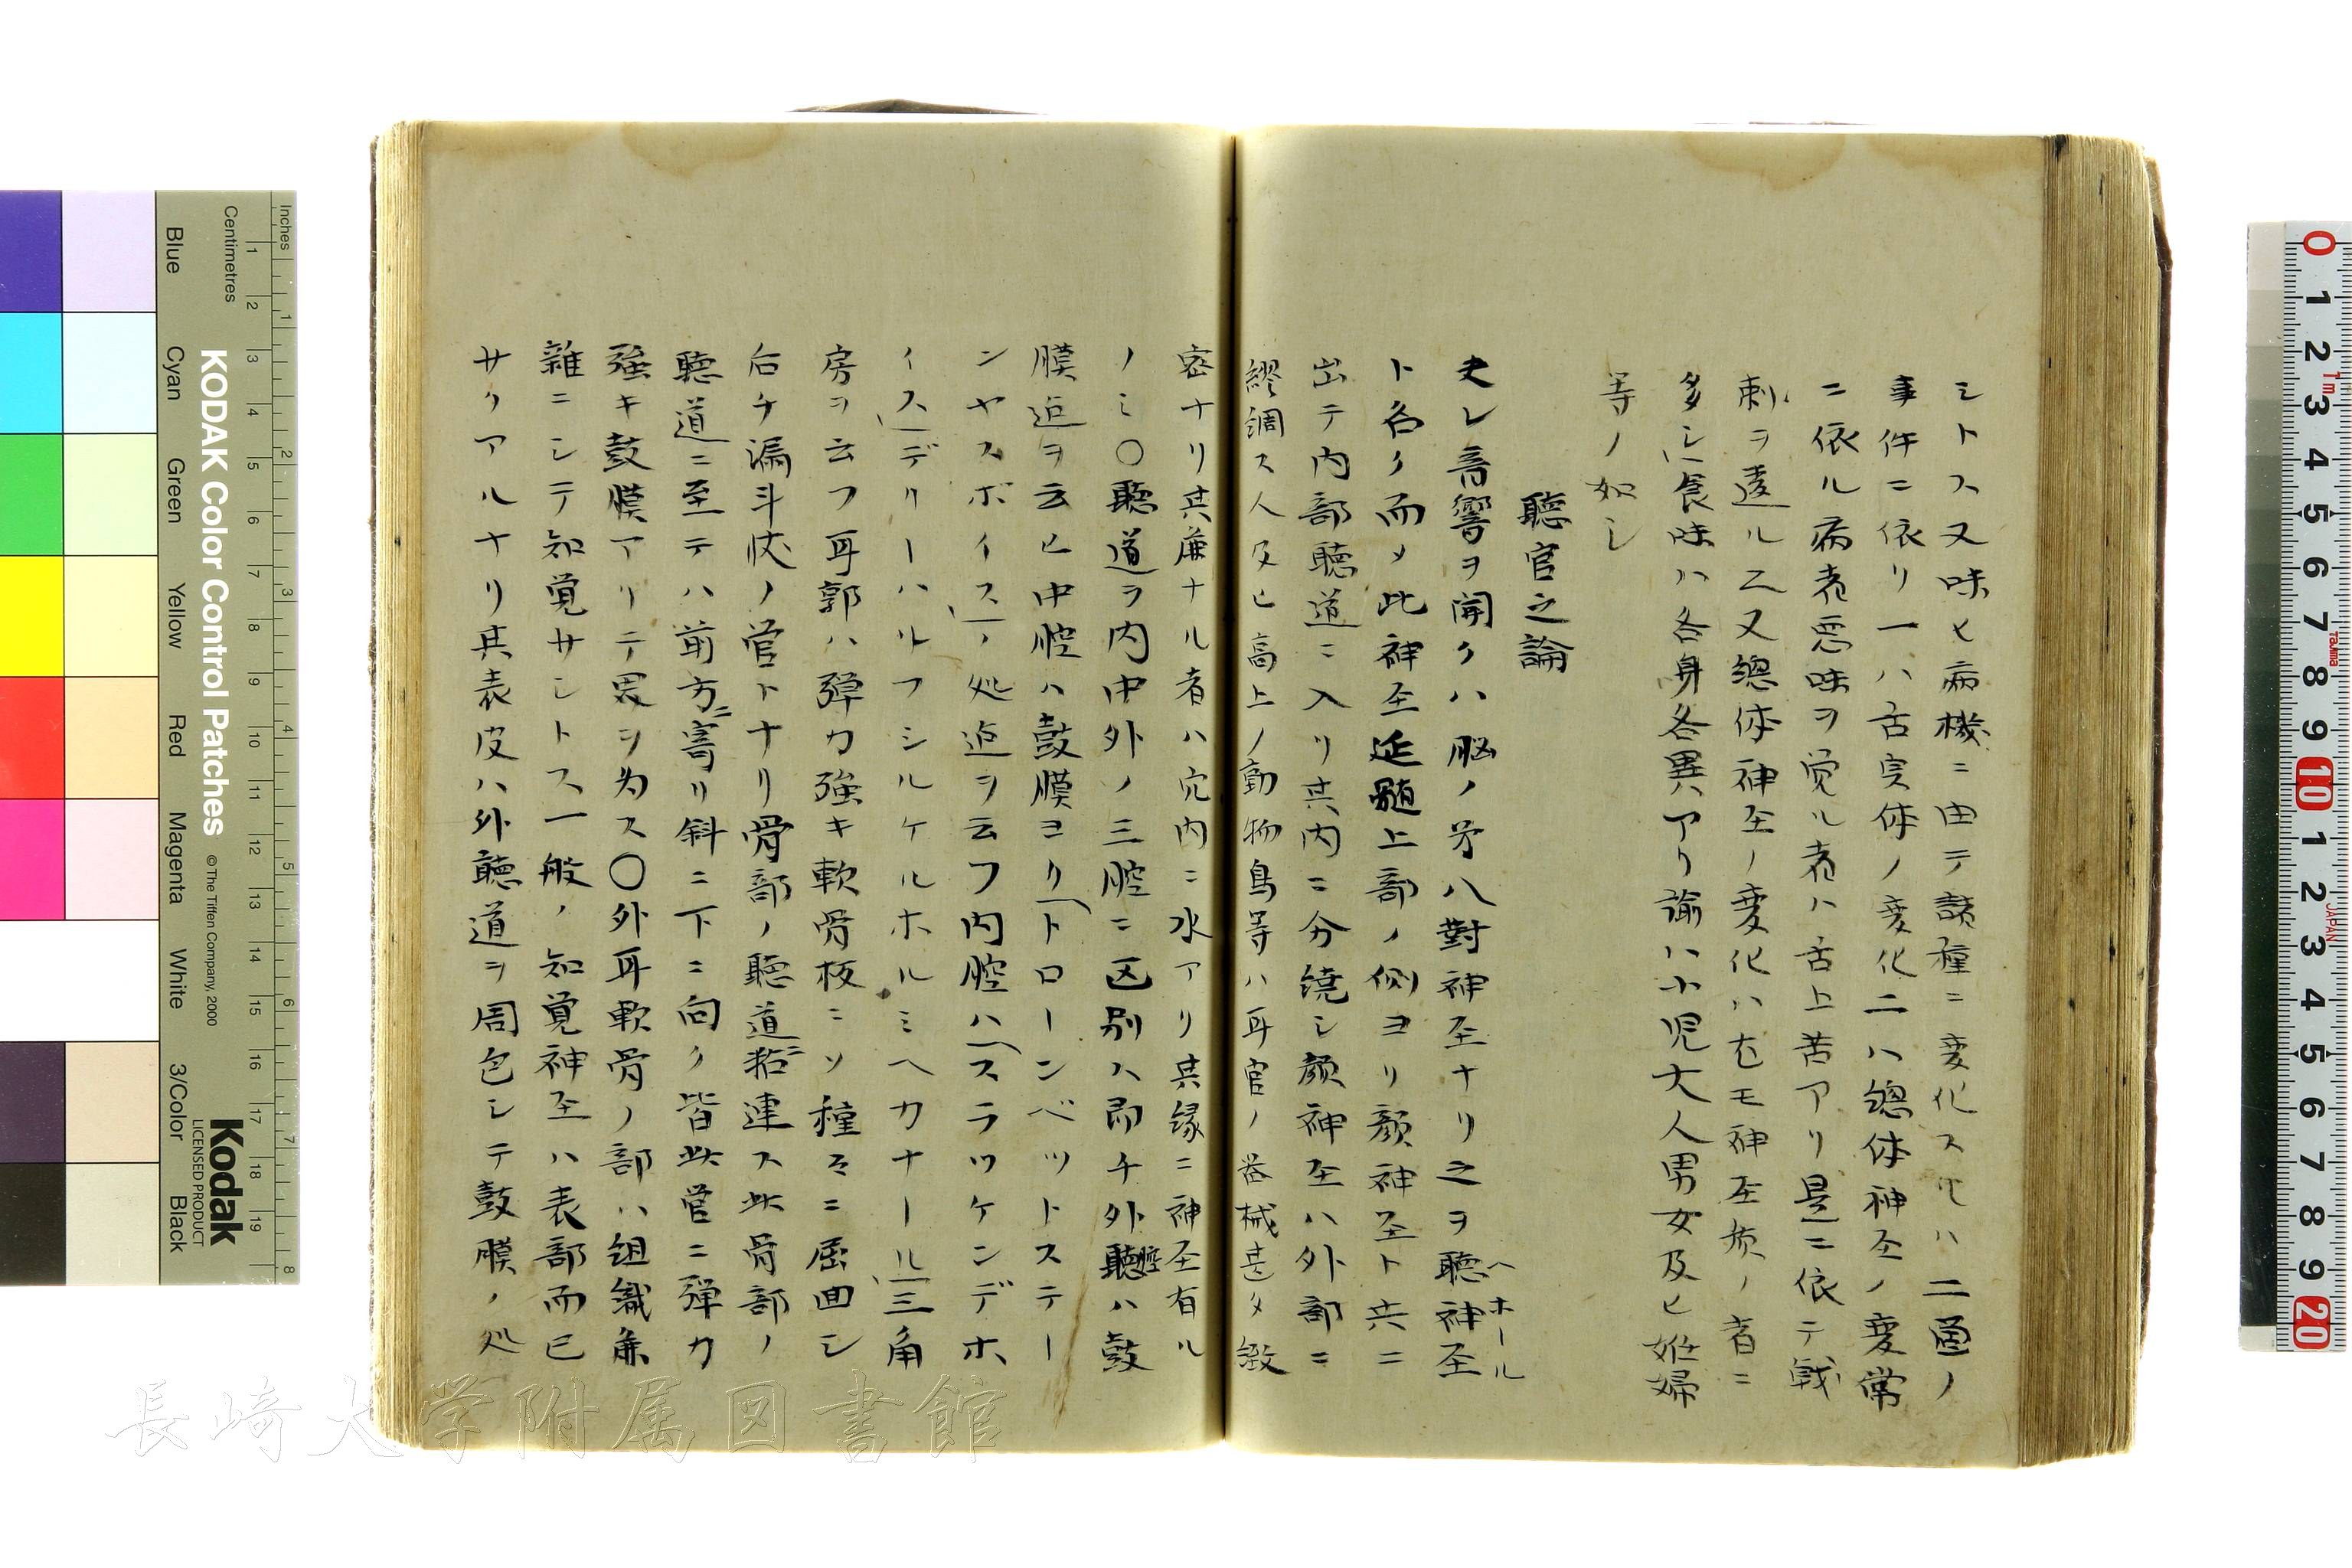 ミトス又味ヒ病機ニ由テ諸種ニ変化スルハ二箇ノ
事件ニ依リ一ハ舌実体ノ変化二ハ總体神圣ノ変常
ニ依ル病者悪味ヲ覚ル者ハ舌上苦アリ是ニ依テ戟
刺ヲ遠ル乙又總体神圣ノ変化ハ尤モ神圣病ノ者ニ
多シ食味ハ各身各異アリ諭ハ小児大人男女及ヒ姙婦
等ノ如シ
聽官之論
夫レ音響ヲ開クハ脳ノ㐧八對神圣ナリ之ヲ聽神圣
ヘホール
ト名ク而メ此神圣延髄上部ノ側ヨリ顔神圣ト共ニ
出テ内部聽道ニ入リ其内ニ分繞シ顔神圣ハ外部ニ
繆綢ス人及ヒ高上ノ動物鳥等ハ耳官ノ器械甚タ緻
密ナリ其廉ナル者ハ穴内ニ水アリ其縁ニ神圣有ル
ノミ○聽道ヲ内中外ノ三腔ニ区別ス即チ外聽腔ハ鼓
膜迠ヲ云ヒ中腔ハ鼓膜ヨリトローンベットステー
ンヤスボイスノ処迠ヲ云フ内腔ハスラッケンデホ
イスデリーハルフシルケルホルミヘカナール三角
房ヲ云フ耳郭ハ弾力強キ軟骨板ニソ種々ニ屈曲シ
后チ漏斗状ノ管トナリ骨部ノ聽道ニ粘連ス此骨部ノ
聽道ニ至テハ前方ニ寄リ斜ニ下ニ向ク皆此管ニ弾力
強キ鼓膜アリテ界ヲ為ス○外耳軟骨ノ部ハ組織兼
雜ニシテ知覚サシトス一般ノ知覚神圣ハ表部而已
サクアルナリ其表皮ハ外聽道ヲ周包シテ鼓膜ノ処
KODAK Color Control Patches
© The Tiffen Company, 2000
Kodak
LICENSED PRODUCT
Inches
Centimetres
Blue
Cyan
Green
Yellow
Red
Magenta
White
3/Color
Black
長崎大学附属図書館